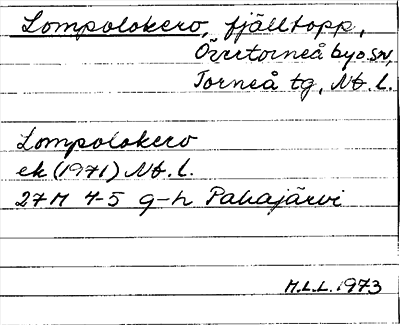 Lompolokero, fjälltopp,
Övertorneå by o. sn,
Torneå tg, Nb. l.
Lompolokero
ek (1971) Nb. l.
27 M 4-5 g-h Pahajärvi
M.L.L. 1973